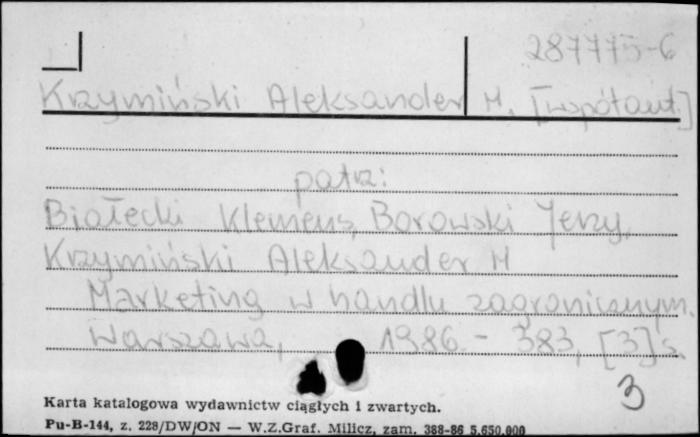 287775-6
Krzymiński Aleksander M. [współaut.]
patrz:
Białecki Klemens, Borowski Jerzy,
Krzymiński Aleksander M
Marketing w handlu zagranicznym.
Warszawa, 1986 - 383, [3] s.
3
Karta katalogowa wydawnictw ciągłych i zwartych.
Pu-B-144, z. 228/DW/ON — W.Z.Graf. Milicz, zam. 388-86 5.650.000